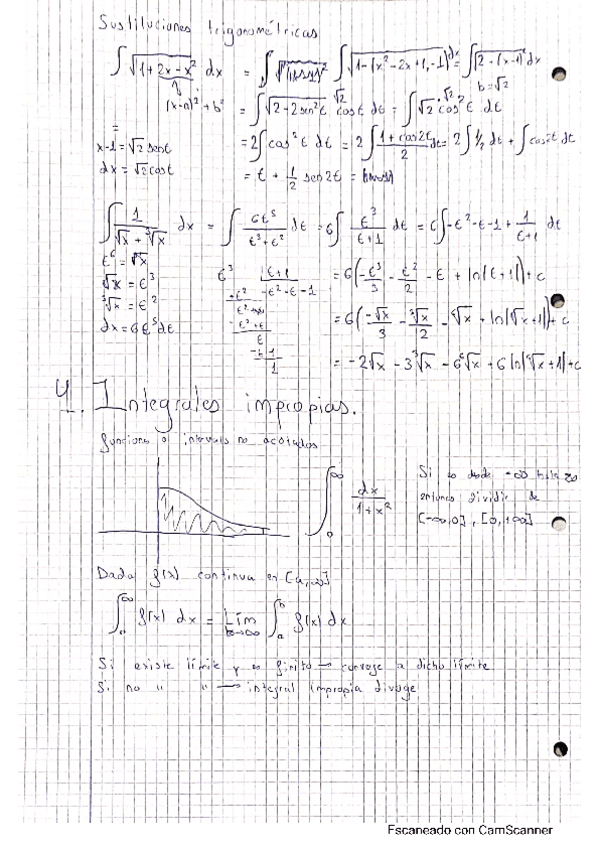 Sustituciones trigonométricas
∫ √(1+2x-x²) dx = ∫ √(1-(x²-2x+1,-1)) dx = ∫ √(2-(x-1)²) dx
(x-a)²+b² = ∫ √(2-2sen²t) √2 cost dt = ∫ √2 √2 cos²t dt b=√2
x-1=√2 sent = 2∫cos²t dt = 2∫ (1+cos2t)/2 dt = 2∫ 1/2 dt + ∫cos2t dt
dx = √2 cost = t + 1/2 sen2t =
∫ 1/(√x + ∛x) dx = ∫ 6t⁵/(t³+t²) dt = 6∫ t³/(t+1) dt = 6∫ -t²-t-1+ 1/(t+1) dt
√x = t³ t³ |t+1 = 6(-t³/3 - t²/2 - t + ln(t+1)) + c
∛x = t² -t²-t-1
dx = 6t⁵dt = 6(-√x/3 - ∛x/2 - ⁶√x + ln(⁶√x+1)) + c
= -2√x - 3∛x - 6⁶√x + 6 ln|⁶√x+1| + c
4. Integrales impropias.
funciones o intervalos no acotados
∫₀^∞ dx/(1+x²)
Si es desde -∞ hasta ∞
entonces dividir de
[-∞,0], [0,+∞]
Dada f(x) continua en [a,∞]
∫ₐ^∞ f(x) dx = Lím b→∞ ∫ₐᵇ f(x) dx
Si existe límite y es finito → converge a dicho límite
Si no " " → integral impropia diverge
Escaneado con CamScanner